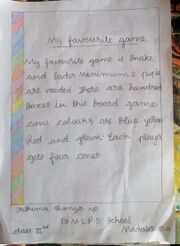 My favourite game
My favourite game is Snake
and lader Minimum 2 people
are needed There are hundred
Boxes in this board game
cone colours are Blue yellow
Red and green Each player
gets four cones
Fathima Shanza
G M L P S School
class III rd